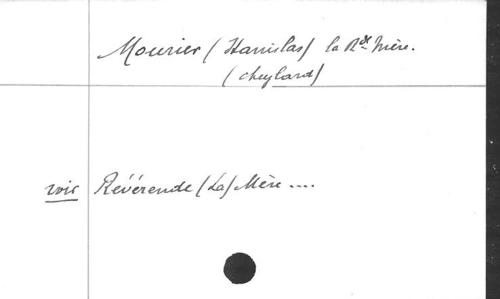 Mourier (Stanislas) la Rde Mère.
(Cheylard)
voir Révérende (La) Mère ....